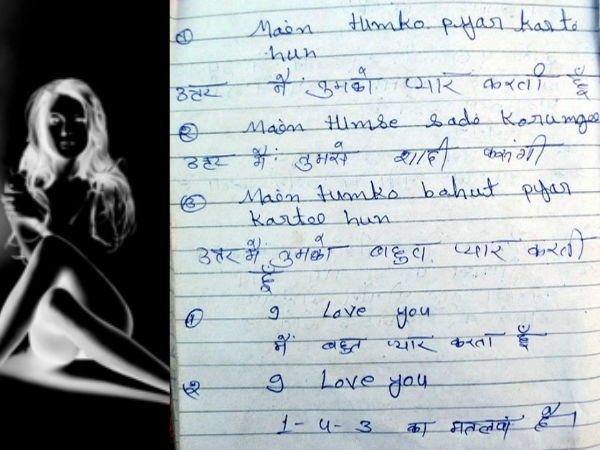 ① Maèn tumko pyar karto
hun
उत्तर मैं तुमको प्यार करती हूँ
② Maèn tumse sado Korumgee
उत्तर मैं तुमसे शादी करूंगी
③ Maèn tumko bahut pyar
kartee hun
उत्तर मैं तुमको बहुत प्यार करती
हूँ
① I Love you
मैं बहुत प्यार करता हूँ
② I Love you
1-4-3 का मतलब है।